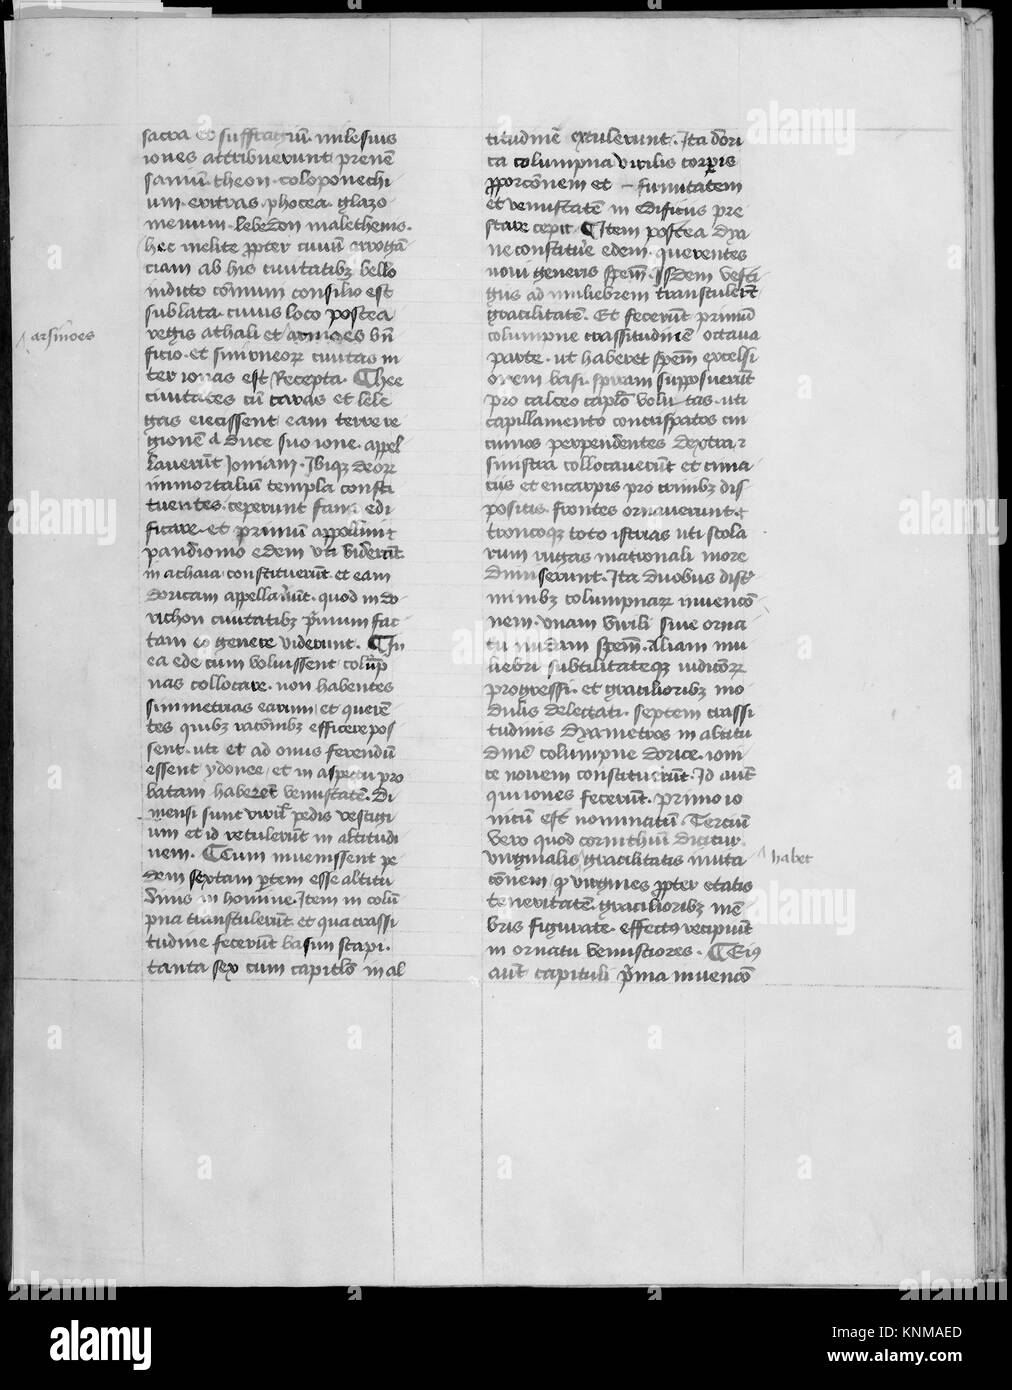 sacra et suffragiū. milesius
iones attribuerunt prenen̄
samiū. theon. coloponechi
um. eritras. phocea. glazo
menum. lebedon malethenis.
hec melite ꝓpter ciuiū arrogā
ciam ab his ciuitatibꝫ bello
indicto cōmuni consilio est
sublata. cuius loco postea
regis athali et bn̄
ficio. et smirneoꝝ ciuitas in
ter ionas est Recepta. ¶ hee
ciuitates cū caras et lele
gas eiecissent eam terre re
gionē a duce suo ione. appel
lauerūt Joniam. Ibiqꝫ deoꝝ
immortaliū templa consti
tuentes. ceperunt fana edi
ficare. et primū appollini
pandionio edem uti viderūt
in achaia constituerūt. et eam
doricam appellauerūt. quod in do
richon ciuitatibꝫ p̄mum fac
tam eo genere viderunt. ¶ In
ea ede cum voluissent colūp
nas collocare. non habentes
simmetrias earum. et queren̄
tes quibꝫ racōnibꝫ efficere pos
sent. uti et ad onus ferendū
essent ydonee. et in aspectu pro
batam haberēt venustatē. Di
mensi sunt virilꝭ pedis vestigi
um et id retulerūt in altitudi
nem. ¶ Cum inuenissent pe
dem sextam ꝑtem esse altitu
dinis in homine. Item in colū
pna transtulerūt. et qua crassi
tudine fecerūt basim scapi.
tanta sex cum capitl̄o in al
titudinē extulerunt. Ita dori
ca columpna virilis corꝑis
ꝓporcōnem et firmitatem
et venustatē in edificiis pre
stare cepit. ¶ Item postea dya
ne constitue edem. querentes
noui generis spēm. Isdem vesti
giis ad muliebrem transtulerūt
gracilitatē. Et fecerūt primū
columpne crassitudinē octaua
parte. ut haberet spēm excelsi
orem basi. spiram supposuerūt
pro calceo capl̄o volutas. uti
capillamento concrispatos cin
cinnos perpendentes dextra ⁊
sinistra collocauerūt et cima
ciis et encarpis pro crinibꝫ dis
positis. frontes ornauerunt.
troncoqꝫ toto istrias uti stola
rum rugas matronali more
dimiserunt. Ita duobus discͥ
minibꝫ columpnaꝝ inuencō
nem. vnam virili siue orna
tu nudam spēm. aliam mu
liebri subtilitateqꝫ iudicōꝝ
progressi. et gracilioribꝫ mo
dulis delectati. septem crassi
tudinis dyametros in altitu
dinē columpne dorice. ioni
ce nouem constituerūt. Id aut̄
qui iones fecerunt. primo io
nicū est nominatū. Terciū
vero quod corinthiū dicitur.
virginalis gracilitatis imita
cōnem. qꝫ virgines ꝓpter etatis
teneritatē. gracilioribꝫ mē
bris figurate. effectꝰ recipiūt
in ornatu venustiores. ¶ Eiꝰ
aut̄ capituli p̄ma inuencō
arsinoes
habet
alamy
KNMAED
www.alamy.com